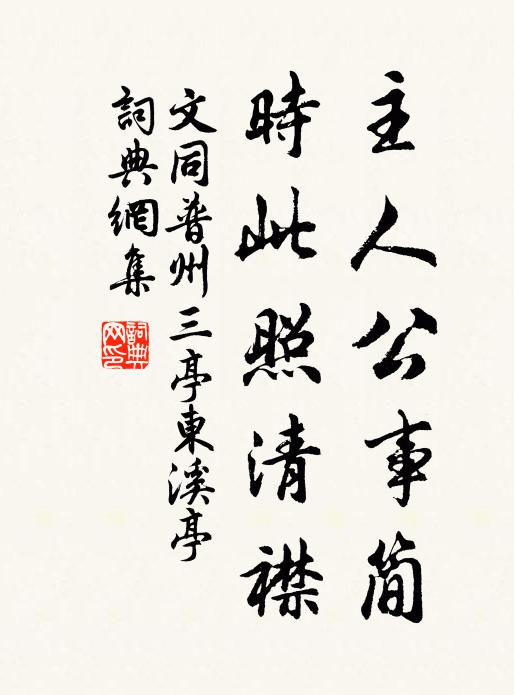 主人公事簡
時此照清襟
文同普州三亭東溪亭
詞典網集
詞典网印